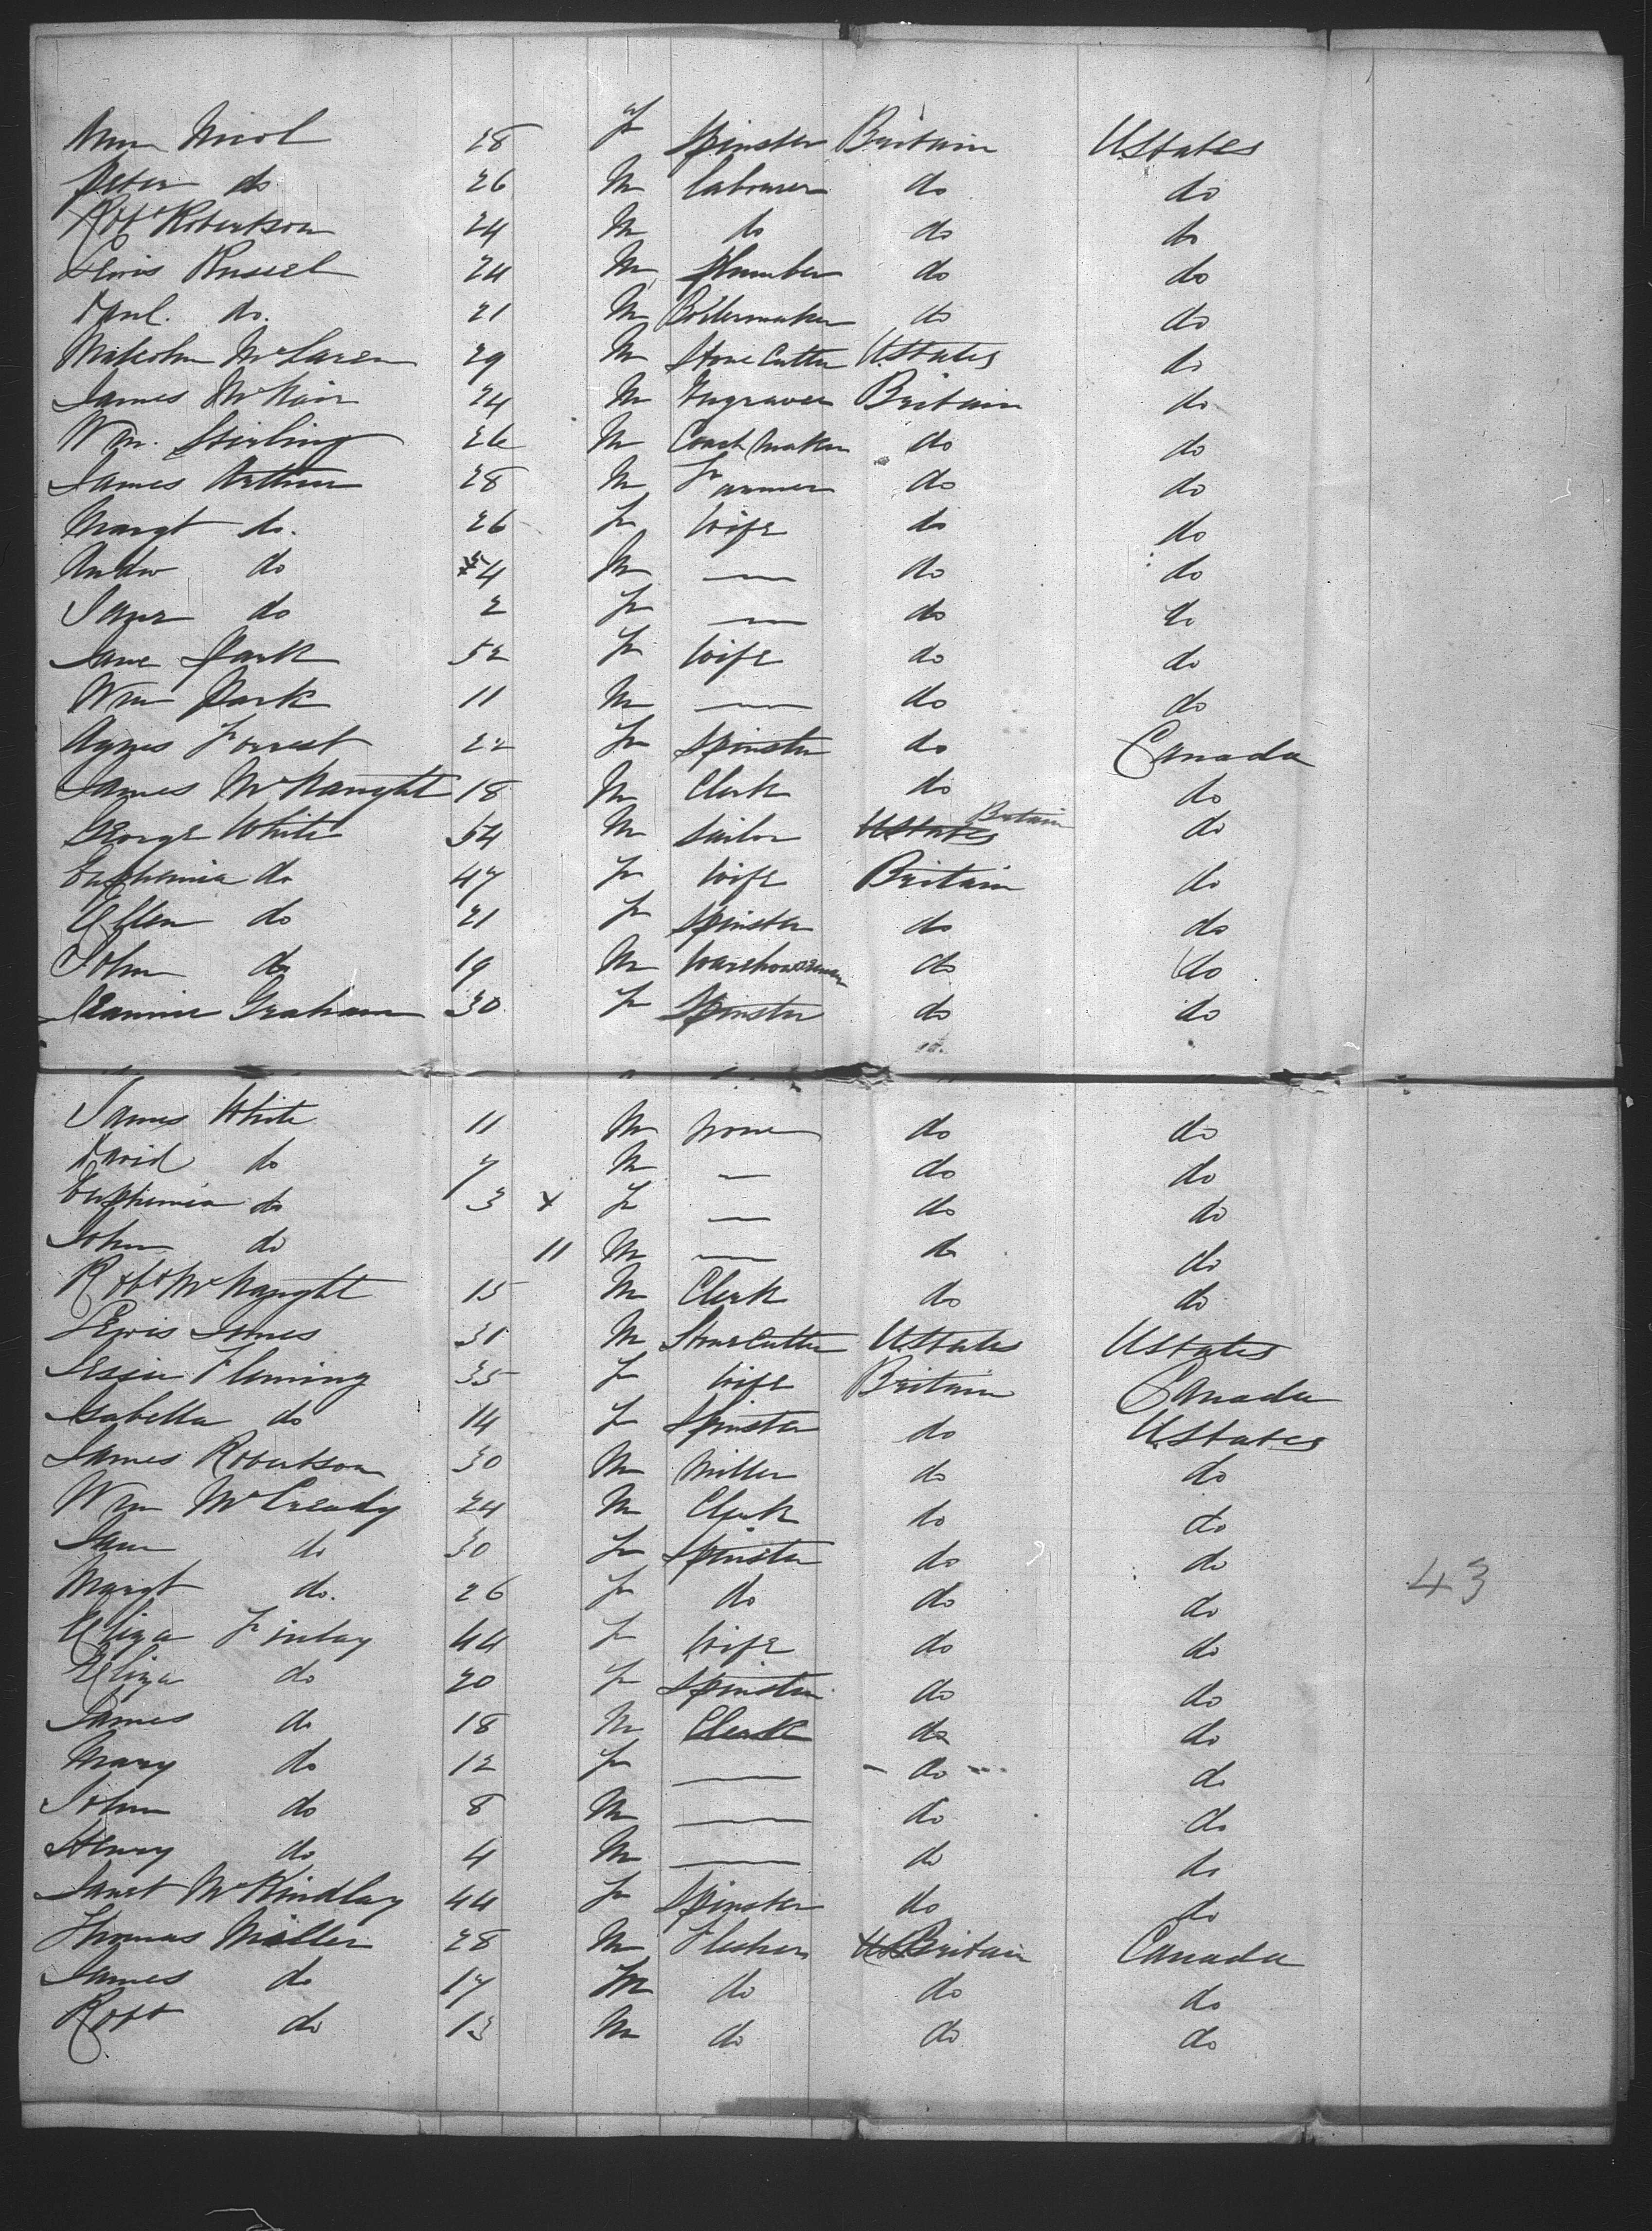 Ann Nicol 28 f Spinster Britain UStates
Peter do 26 M labourer do do
Robt Robertson 24 M do do do
Lewis Russel 24 M Plumber do do
Danl. do. 21 M Boilermaker do do
Malcolm McLaren 29 M Stone Cutter UStates do
James McNair 24 M Engraver Britain do
Wm. Stirling 26 M Coach Maker do do
James Arthur 28 M Farmer do do
Margt do. 26 F Wife do do
Andw do 4 M — do do
Jane do 2 F — do do
Jane Park 52 F Wife do do
Wm Park 11 M — do do
Agnes Forrest 22 F Spinster do Canada
James McNaught 18 M Clerk do do
George White 54 M Sailor UStates Britain do
Euphemia do 47 F Wife Britain do
Ellen do 21 F Spinster do do
John do 19 M Warehouseman do do
Jeannie Graham 30 F Spinster do do
James White 11 M None do do
David do 7 M — do do
Euphemia do 3 x F — do do
John do 11 M — do do
Robt McNaught 15 M Clerk do do
Lewis Innes 31 M Stone Cutter UStates UStates
Jessie Fleming 35 F Wife Britain Canada
Isabella do 14 F Spinster do UStates
James Robertson 30 M Miller do do
Wm McCready 24 M Clerk do do
Jane do 30 F Spinster do do
Margt do. 26 F do do do 43
Eliza Finlay 44 F Wife do do
Eliza do 20 F Spinster do do
James do 18 M Clerk do do
Mary do 12 F — do do
John do 8 M — do do
Henry do 4 M — do do
Janet McKindlay 44 F Spinster do do
Thomas Miller 28 M Flesher Britain Canada
James do 17 M do do do
Robt do 13 M do do do